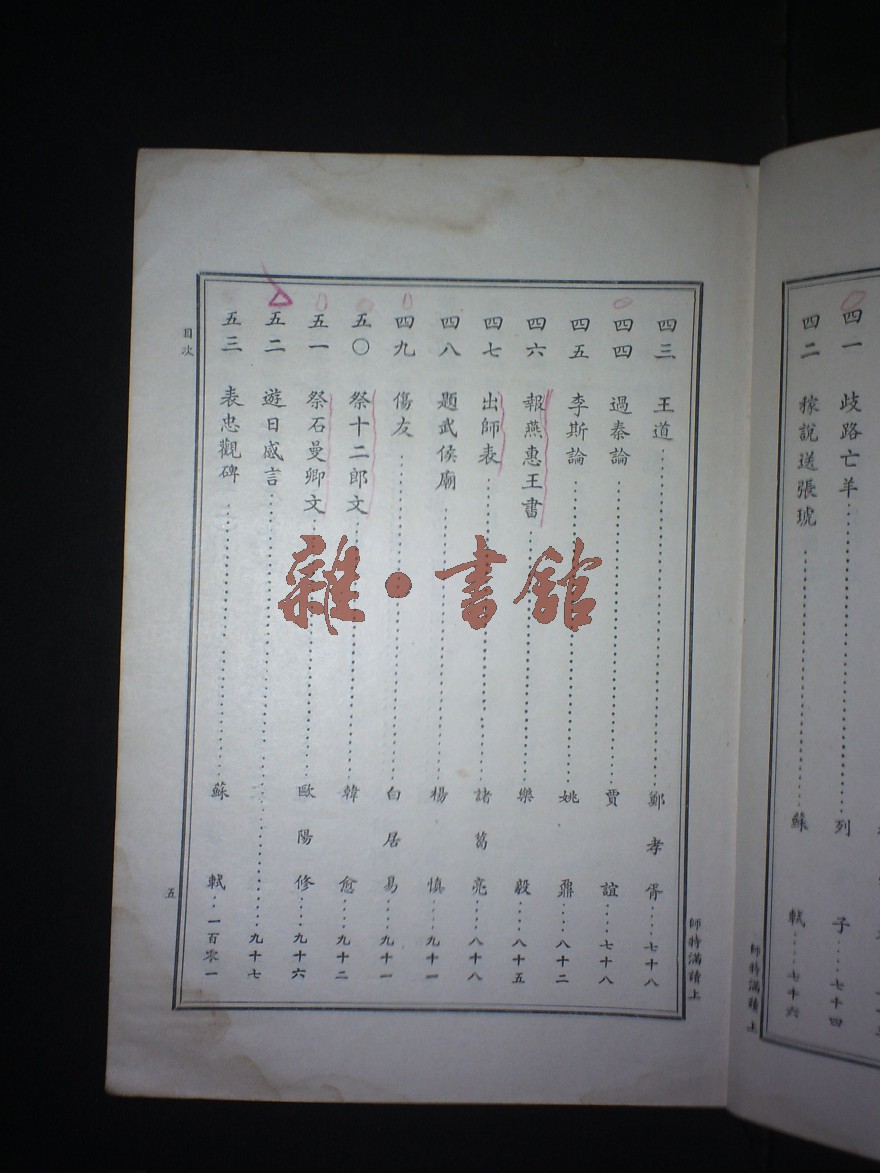 四一　歧路亡羊……列子……七十四
四二　稼說送張琥……蘇軾……七十六
師特滿讀上
四三　王道……鄭孝胥……七十八
四四　過秦論……賈誼……七十八
四五　李斯論……姚鼐……八十二
四六　報燕惠王書……樂毅……八十五
四七　出師表……諸葛亮……八十八
四八　題武侯廟……楊慎……九十一
四九　傷友……白居易……九十一
五〇　祭十二郎文……韓愈……九十二
五一　祭石曼卿文……歐陽修……九十六
五二　遊日感言……九十七
五三　表忠觀碑……蘇軾……一百零一
師特滿讀上
目次
五
雜·書館